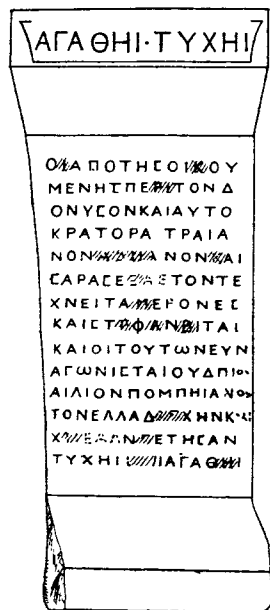 ΑΓΑΘΗΙ·ΤΥΧΗΙ
ΑΠΟΤΗΣΟΙΚΟΥ
ΜΕΝΗΣΠΕΡΙΤΟΝΔ
ΟΝΥΣΟΝΚΑΙΑΥΤΟ
ΚΡΑΤΟΡΑ ΤΡΑΙΑ
ΝΟΝ ΑΝΟΝΚΑΙ
CΑΡΑΣΕ ΑΣΤΟΝΤΕ
ΧΝΕΙΤΑΙ ΙΕΡΟΝΕC
ΚΑΙΣΤΕΦΑΝΕΙΤΑΙ
ΚΑΙΟΙΤΟΥΤΩΝΕΥΝ
ΑΓΩΝΙΣΤΑΙΟΥΔΠΙΟΝ
ΑΙΛΙΟΝΠΟΜΠΗΙΑΝΟΝ
ΤΟΝΕΛΛΑΔ ΧΗΝΚΑΙ
ΕΤΗΣΑΝ
ΤΥΧΗΙ ΑΓΑΘΗΙ